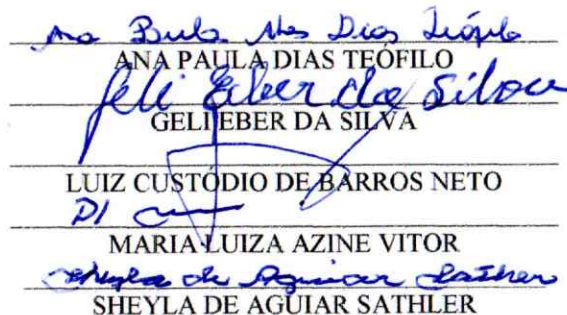 Ana Paula Ales Dias Teófilo
ANA PAULA DIAS TEÓFILO
Geli Eber da Silva
GELI EBER DA SILVA
LUIZ CUSTÓDIO DE BARROS NETO
P/
MARIA LUIZA AZINE VITOR
Sheyla de Aguiar Sathler
SHEYLA DE AGUIAR SATHLER